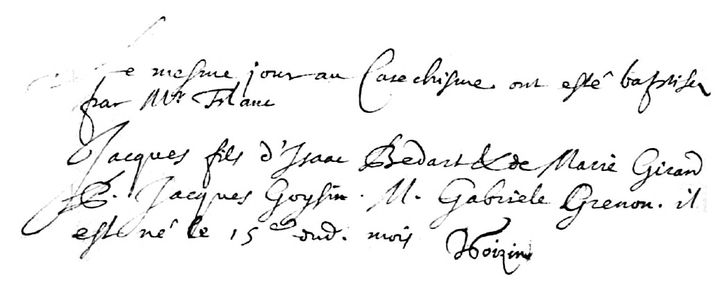 Le mesme jour au Catechisme ont esté baptisés
par Mr Flanc
Jacques fils d'Isaac Bedart & de Marie Girard
P. Jacques Goysin. M. Gabriele Grenon. il
est né le 15e dud. mois